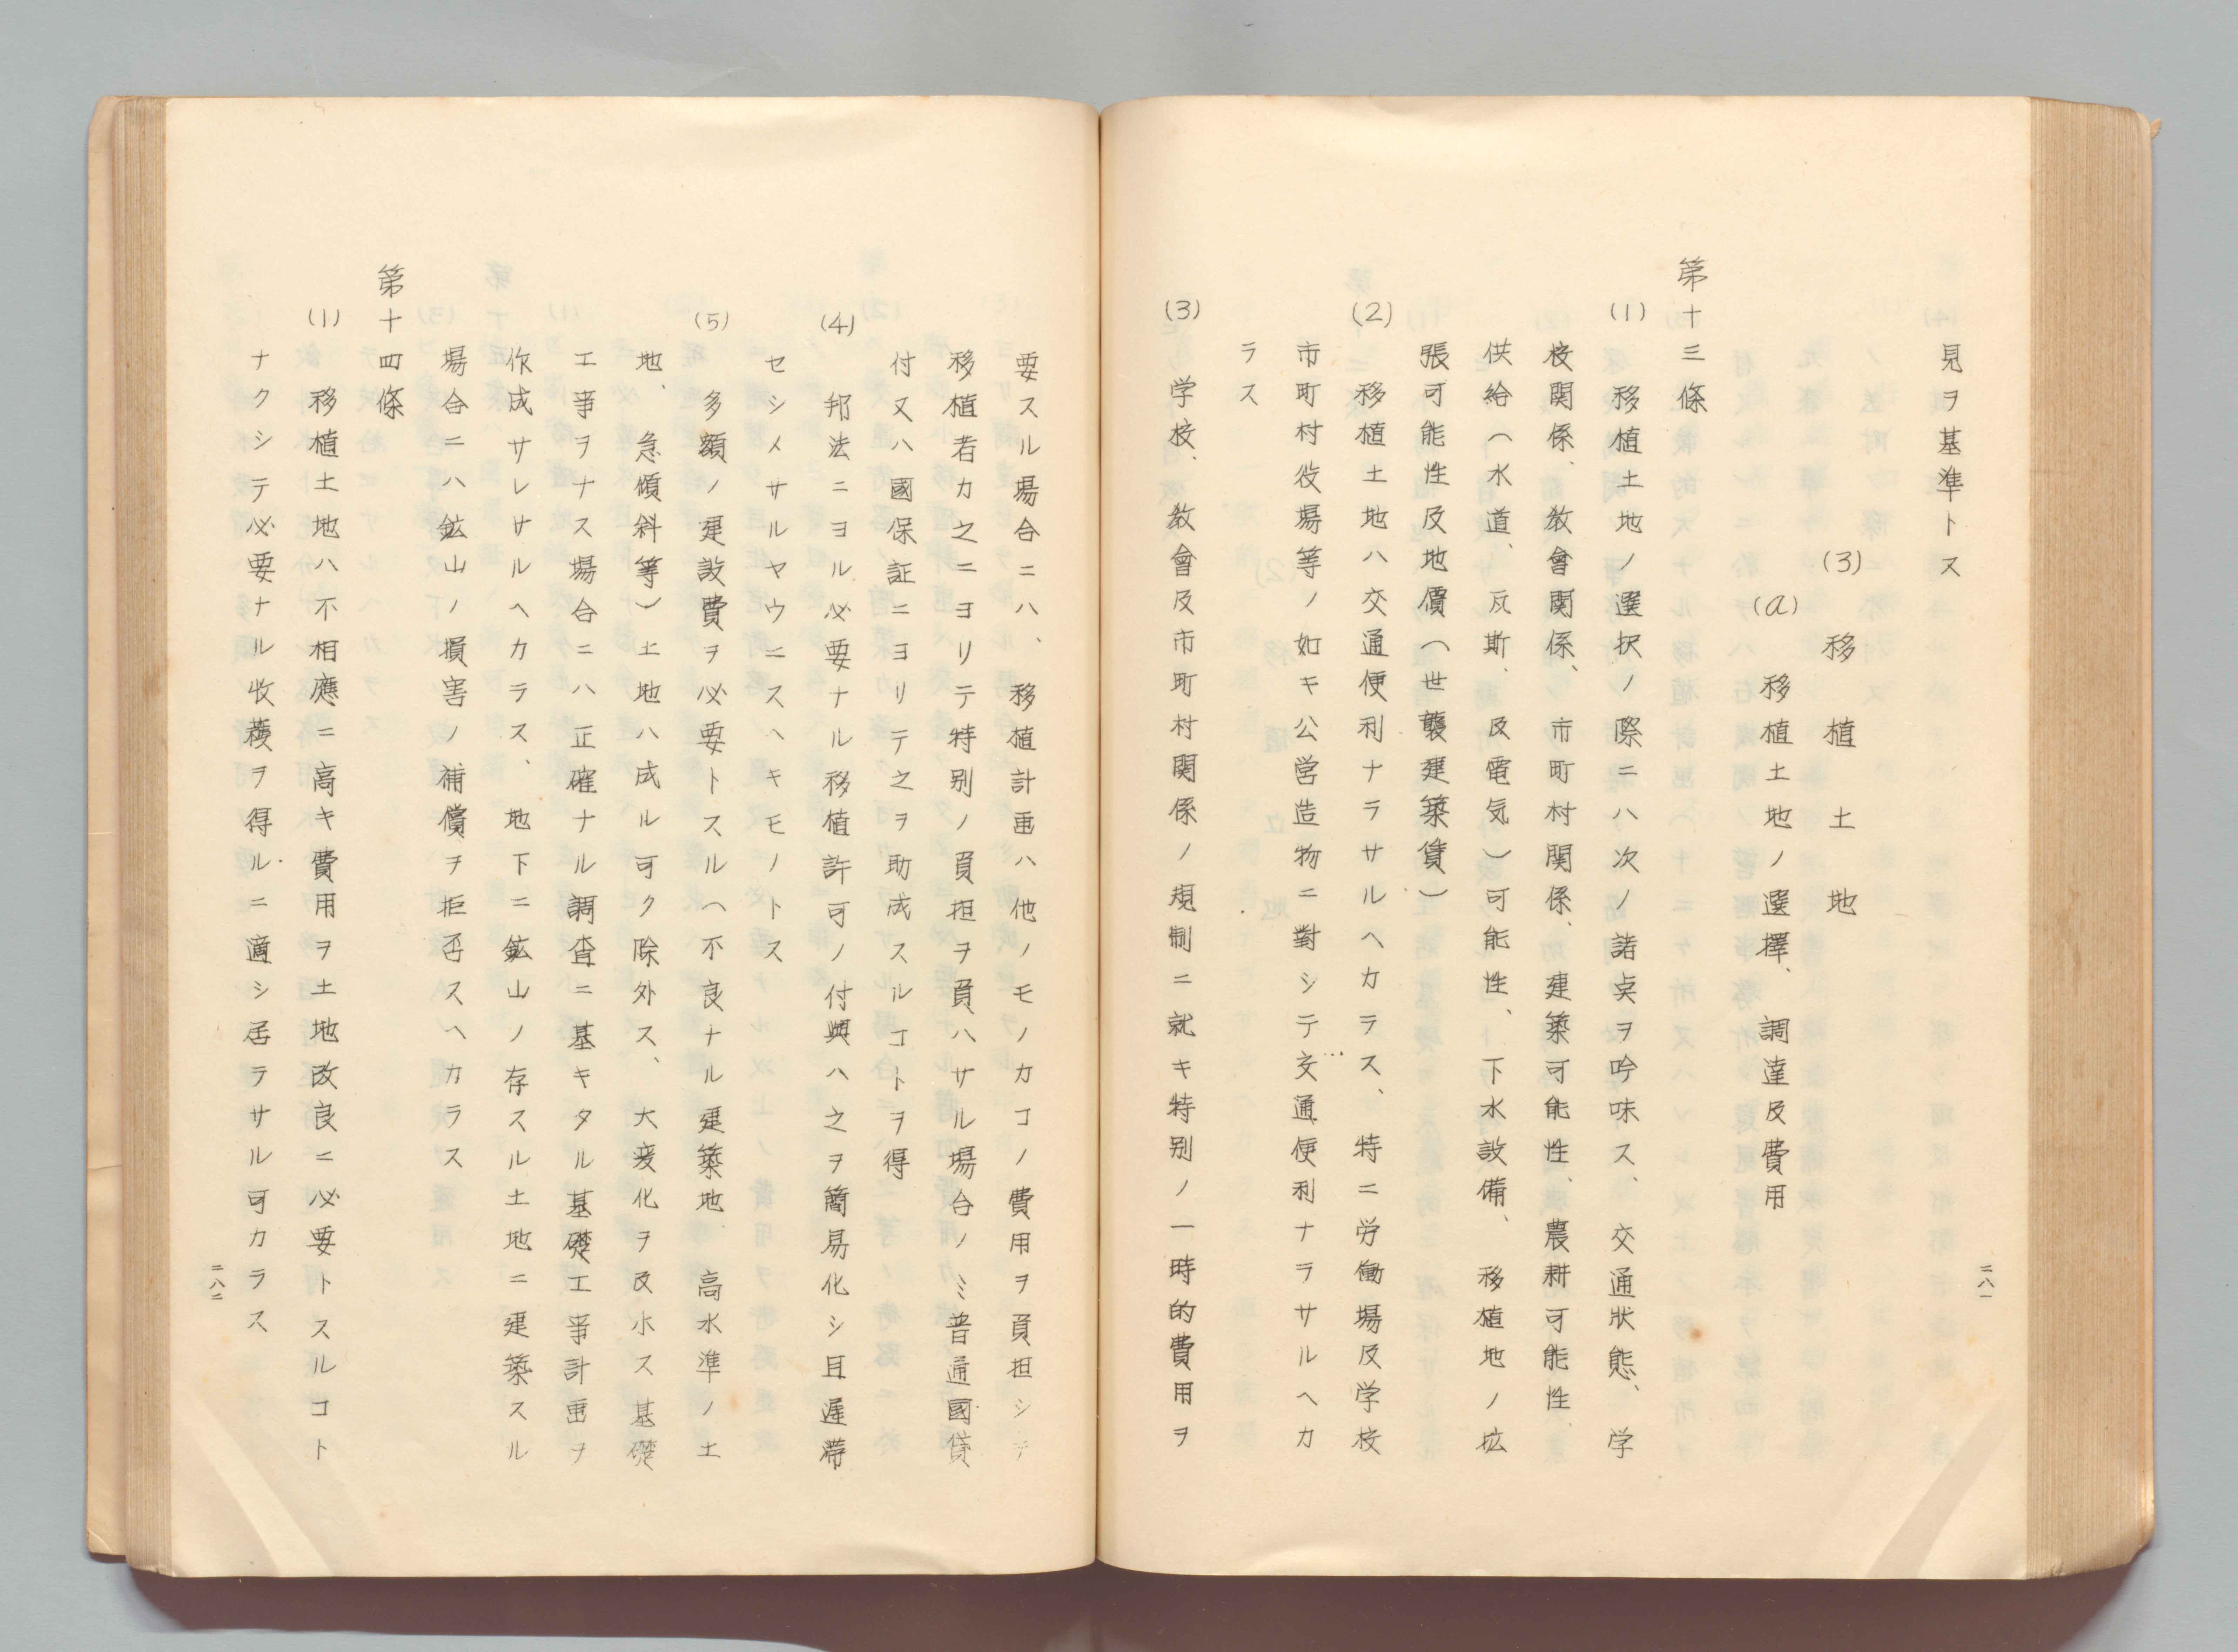 見ヲ基準トス
(3) 移植土地
(a) 移植土地ノ選擇、調達及費用
第十三條
(1) 移植土地ノ選択ノ際ニハ次ノ諸点ヲ吟味ス、交通狀態、学
校関係、敎會関係、市町村関係、建築可能性、農耕可能性、
供給(水道、瓦斯、及電気)可能性、下水設備、移植地ノ拡
張可能性及地價(世襲建築賃)
(2) 移植土地ハ交通便利ナラサルヘカラス、特ニ労働場及学校
市町村役場等ノ如キ公営造物ニ對シテ交通便利ナラサルヘカ
ラス
(3) 学校、敎會及市町村関係ノ規制ニ就キ特別ノ一時的費用ヲ
二八一
要スル場合ニハ、移植計画ハ他ノモノカコノ費用ヲ負担シテ
移植者カ之ニヨリテ特別ノ負担ヲ負ハサル場合ノミ普通國貸
付又ハ國保証ニヨリテ之ヲ助成スルコトヲ得
(4) 邦法ニヨル必要ナル移植許可ノ付與ハ之ヲ簡易化シ且遅滞
セシメサルヤウニスヘキモノトス
(5) 多額ノ建設費ヲ必要トスルヘ不良ナル建築地 高水準ノ土
地、急傾斜等)土地ハ成ル可ク除外ス、大変化ヲ及ホス基礎
工事ヲナス場合ニハ正確ナル調査ニ基キタル基礎工事計画ヲ
作成サレサルヘカラス、地下ニ鉱山ノ存スル土地ニ建築スル
場合ニハ鉱山ノ損害ノ補償ヲ拒否スヘカラス
第十四條
(1) 移植土地ハ不相應ニ高キ費用ヲ土地改良ニ必要トスルコト
ナクシテ必要ナル收穫ヲ得ルニ適シ居ラサル可カラス
二八二